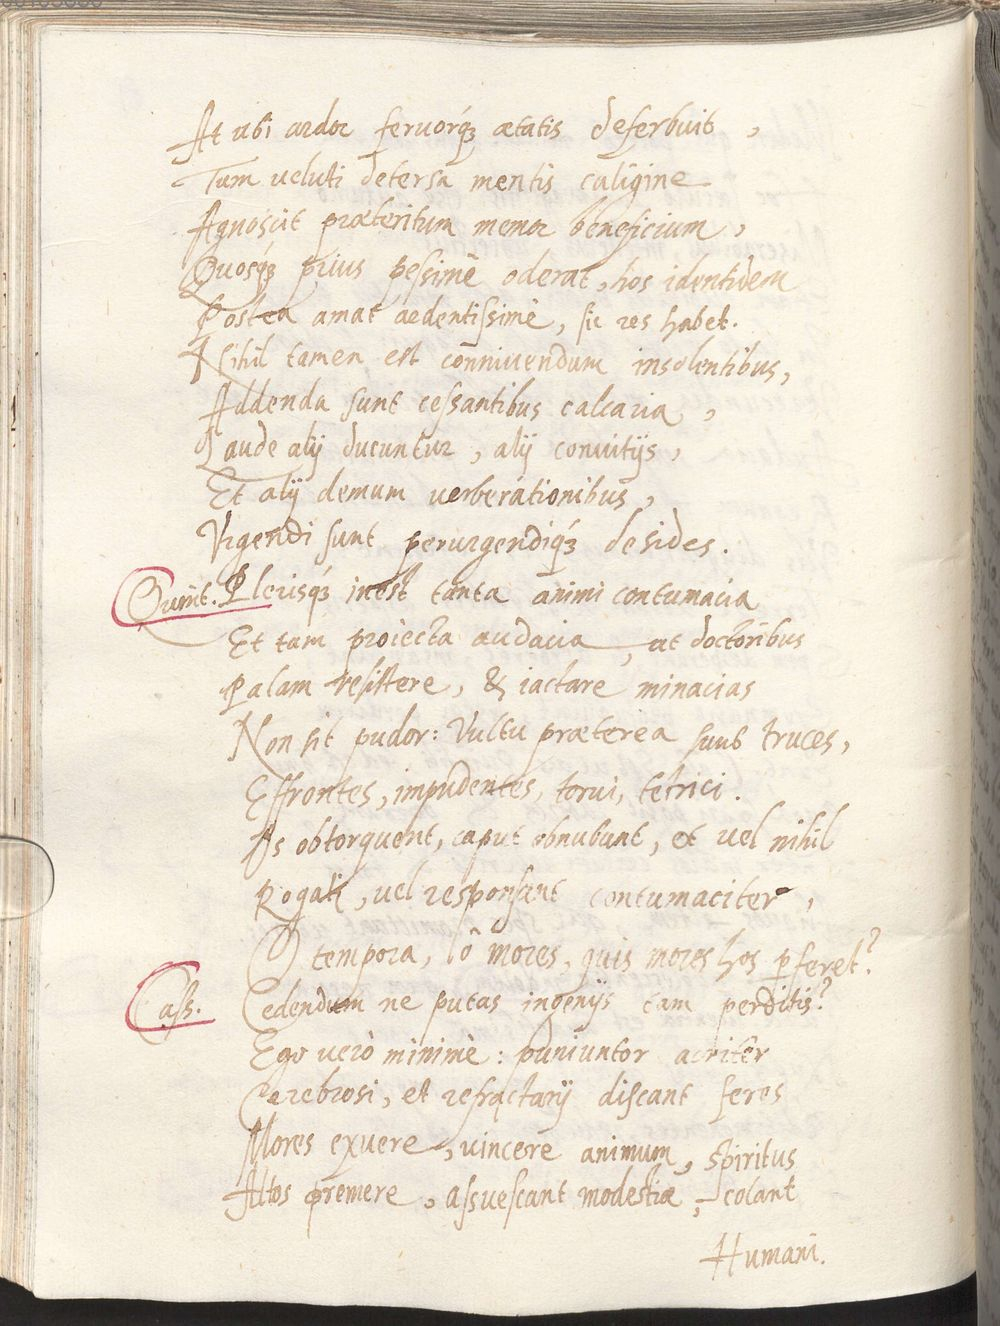 At ubi ardor feruorq́ꝫ ætatis deferbuit,
Tum ueluti detersa mentis caligine
Agnoscit præteritum memor beneficium,
Quosq́ꝫ prius pessimè oderat, hos identidem
Postea amat ardentissimè, sic res habet.
Nihil tamen est conniuendum insolentibus,
Addenda sunt cessantibus calcaria,
Laude alij ducuntur, alij conuitijs,
Et alij demum uerberationibus,
Vrgendi sunt perurgendiq́ꝫ desides.
Quint. Plerisq́ꝫ inest tanta animi contumacia
Et tam proiecta audacia, ut doctoribus
Palam resistere, & iactare minacias
Non sit pudor: Vultu præterea sunt truces,
Effrontes, impudentes, torui, tetrici.
Os obtorquent, caput obnubunt, et uel nihil
Rogati, uel responsant contumaciter,
O tempora, ô mores, quis mores hos ꝑferet?
Cass. Cedendum ne putas ingenijs tam perditis?
Ego uerò minimè: puniuntor acriter
Cerebrosi, et refractarij discant feros
Mores exuere, uincere animum, spiritus
Altos premere, assuescant modestiæ, colant
Humani.